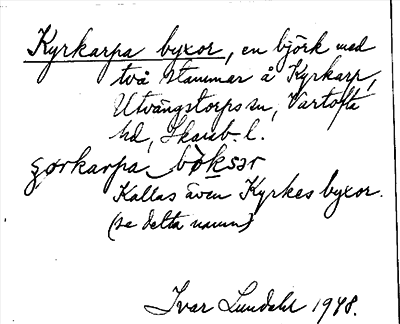 Kyrkarpa byxor, en björk med
två stammar å Kyrkarp,
Utvängstorps sn, Vartofta
hd, Skarab. l.
çorkarpa böksər
Kallas även Kyrkes byxor.
(se detta namn)
Ivar Lundahl 1948.